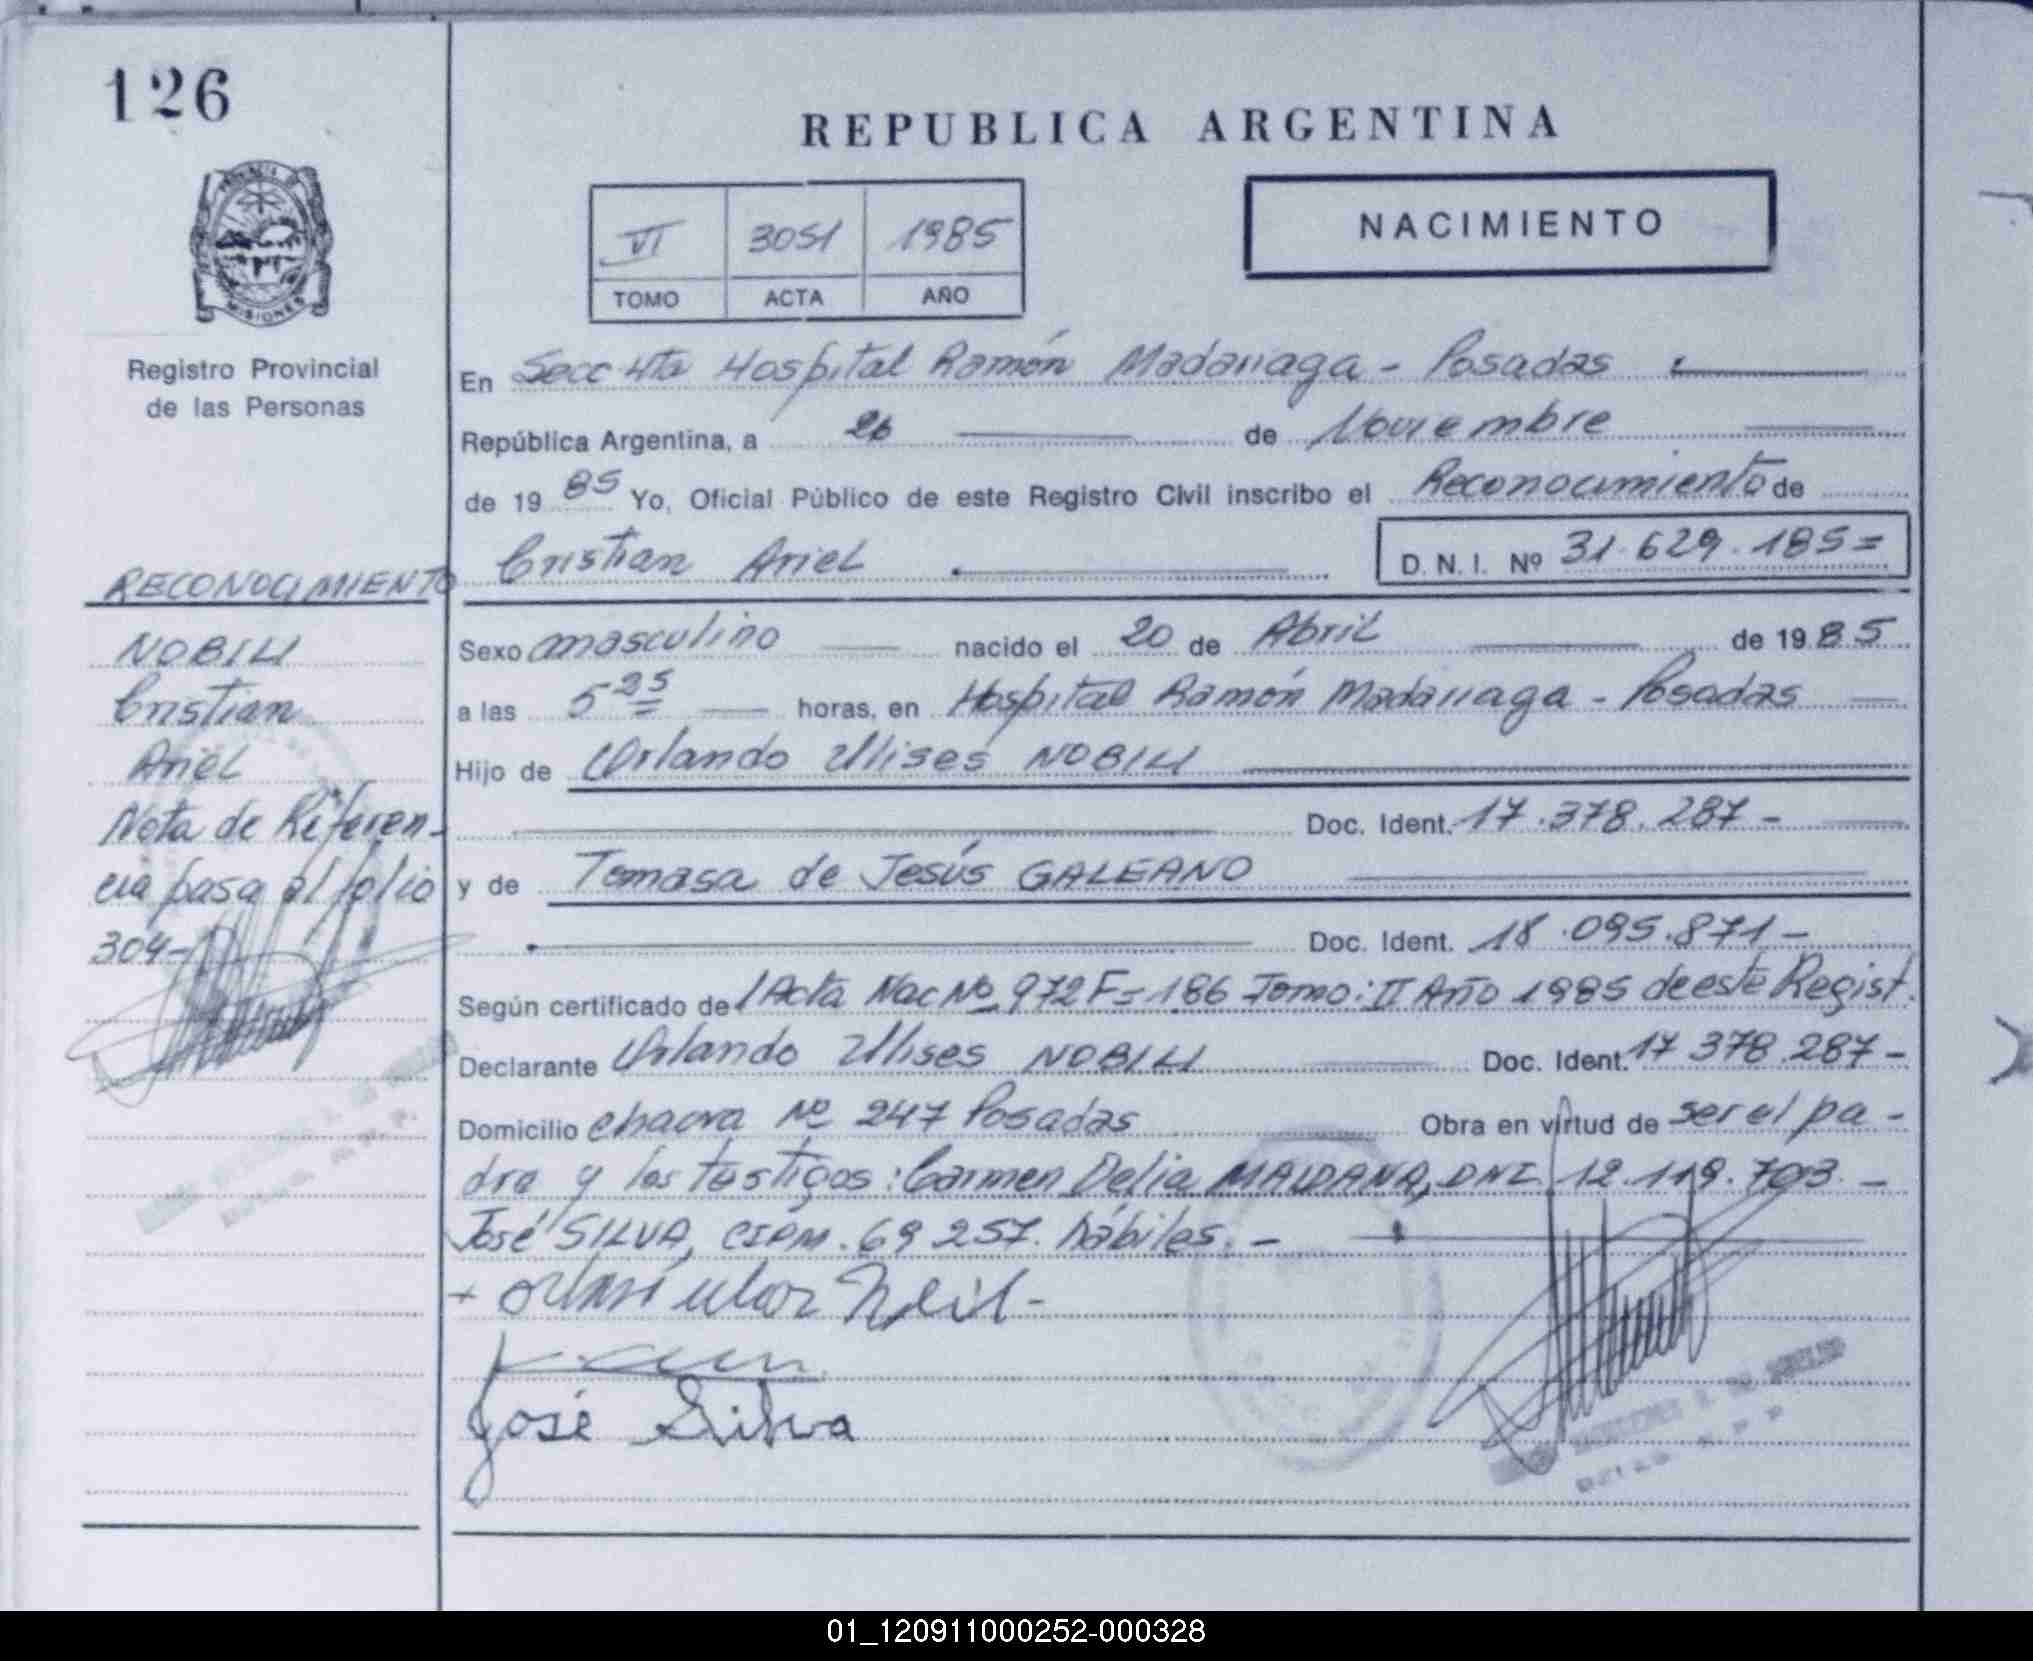 126
REPUBLICA ARGENTINA
NACIMIENTO
VI 3051 1985
TOMO ACTA AÑO
PROVINCIA DE MISIONES
Registro Provincial
de las Personas
En Secc 4ta Hospital Ramón Madariaga - Posadas
República Argentina, a 26 de Noviembre
de 19 85 Yo, Oficial Público de este Registro Civil inscribo el Reconocimiento de
Cristian Ariel D. N. I. Nº 31.629.185=
RECONOCIMIENTO
NOBILI
Cristian
Ariel
Nota de Referen-
cia pasa al folio
304-
Sexo masculino nacido el 20 de Abril de 19 85
a las 5 25 horas, en Hospital Ramón Madariaga - Posadas
Hijo de Orlando Ulises NOBILI
Doc. Ident. 17.378.287-
y de Tomasa de Jesús GALEANO
Doc. Ident. 18.095.871-
Según certificado de Acta Nac Nº 972 F=186 Tomo: II Año 1985 de este Regist.
Declarante Orlando Ulises NOBILI Doc. Ident. 17 378 287-
Domicilio chacra Nº 247 Posadas Obra en virtud de ser el pa-
dre y los testigos: Carmen Delia MALDANA, DNI 12.119.703.-
José SILVA, CIPM. 69 257. hábiles.-
José Silva
01_120911000252-000328